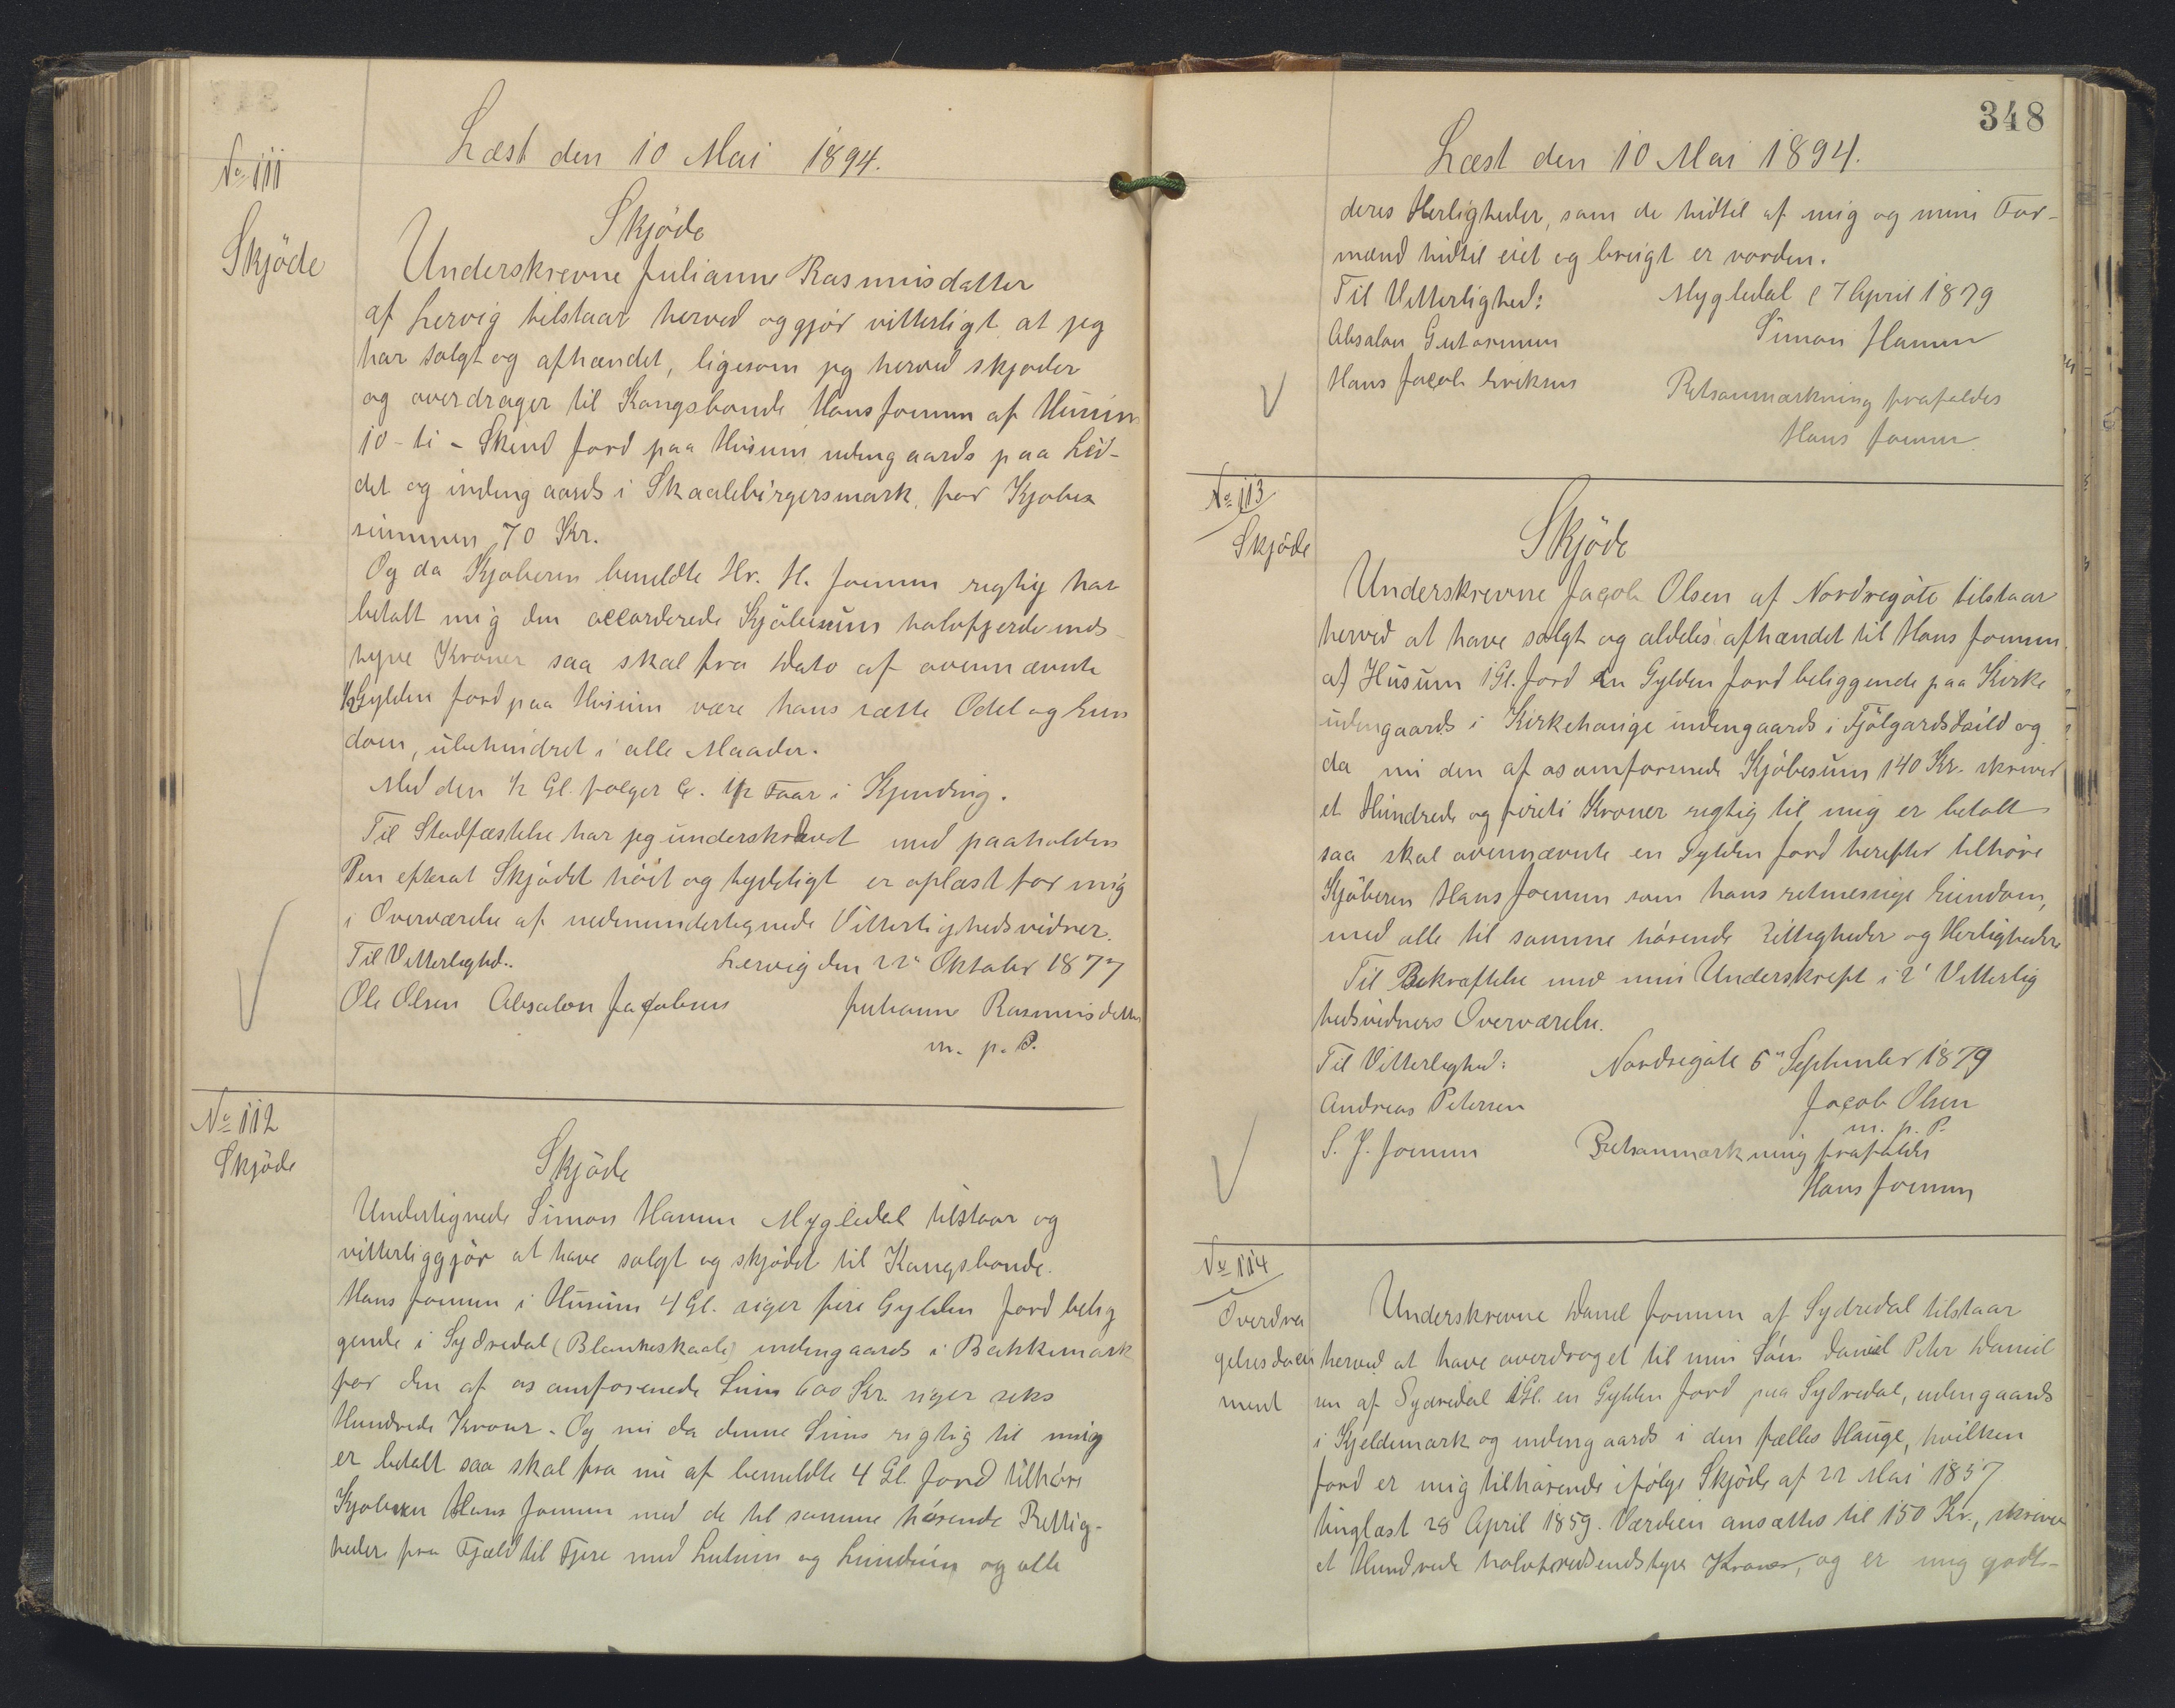 Læst den 10 Mai 1894.
No 111
Skjöde
Skjöde
Underskrevne Julianne Rasmusdatter
af Lervig tilstaar herved og gjör vitterligt at jeg
har solgt og afhændet, ligesom jeg herved skjøder
og overdrager til Kongsbonde Hans Joensen af Husum
10 - ti - Skind Jord paa Husum udengaards paa Lid-
det og indengaards i Skaalebirgersmark, for Kjøbe
summen 70 Kr.
Og da Kjøberen bemeldte Hr. H. Joensen rigtig har
betalt mig den accorderede Kjöbesum halvfjerdsinds
tyve Kroner saa skal fra Dato af ovennævnte
1/2 Gylden Jord paa Husum være hans rette Odel og Eien
dom, ubehindret i alle Maader.
Med den 1/2 Gl. følger C. 1/2 Faar i Kjending.
Til Stadfæstelse har jeg underskrevet med paaholden
Pen efterat Skjödet höit og tydeligt er oplæst for mig
i Overværelse af nedenundertegnede Vitterlighedsvidner.
Til Vitterlighed. Lervig den 22 Oktober 1877
Ole Olsen Absalon Jacobsen Julianne Rasmusdatter
m. p. P.
No 112
Skjöde
Skjöde
Undertegnede Simon Hansen Mygledal tilstaar og
vitterliggjör at have solgt og skjödet til Kongsbonde
Hans Joensen i Husum 4 Gl. siger fire Gylden Jord belig
gende i Sydredal (Blankeskaale) indengaards i Bakkemark
for den af os omforenede Sum 600 Kr. siger seks
Hundrede Kroner. Og nu da denne Sum rigtig til mig
er betalt saa skal fra nu af bemeldte 4 Gl. Jord tilhöre
Kjøberen Hans Joensen med de til samme hörende Rettig-
heder fra Fjeld til Fjære med Lutum og Lundum og alle
348
Læst den 10 Mai 1894.
deres Herligheder, som de hidtil af mig og mine For-
mænd hidtil eiet og brugt er vorden.
Til Vitterlighed: Mygledal 7 April 1879
Absalon Guttormsen Simon Hansen
Hans Jacob Eriksen Retsanmærkning frafaldes
Hans Joensen
No 113
Skjöde
Skjöde
Underskrevne Jacob Olsen af Nordregöte tilstaar
herved at have solgt og aldeles afhændet til Hans Joensen
af Husum 1 Gl. Jord en Gylden Jord beliggende paa Kirke
udengaards i Kirkehauge indengaards i og
da nu den af os omforenede Kjöbesum 140 Kr. skriver
et Hundrede og fireti Kroner rigtig til mig er betalt
saa skal ovennævnte en Gylden Jord herefter tilhöre
Kjöberen Hans Joensen som hans retmessige Eiendom,
med alle til samme hörende Rettigheder og Herligheder
Til Bekræftelse med min Underskrift i 2 Vitterlig
hedsvidners Overværelse.
Til Vitterlighed: Nordregöte 5 September 1879
Andreas Petersen Jacob Olsen
m. p. P.
S. P. Joensen Retsanmærkning frafaldes
Hans Joensen
No 114
Overdra
gelsesdocu
ment
Underskrevne Daniel Joensen af Sydredal tilstaar
herved at have overdraget til min Sön Daniel Peter Daniel
sen af Sydredal 1 Gl. en Gylden Jord paa Sydredal, udengaards
i Kjeldemark og indengaards i den fælles Hauge, hvilken
Jord er mig tilhörende ifölge Skjöde af 22 Mai 1857
tinglæst 28 April 1859. Værdien ansættes til 150 Kr., skriver
et Hundrede halvtredsindstyve Kroner, og er mig godt-